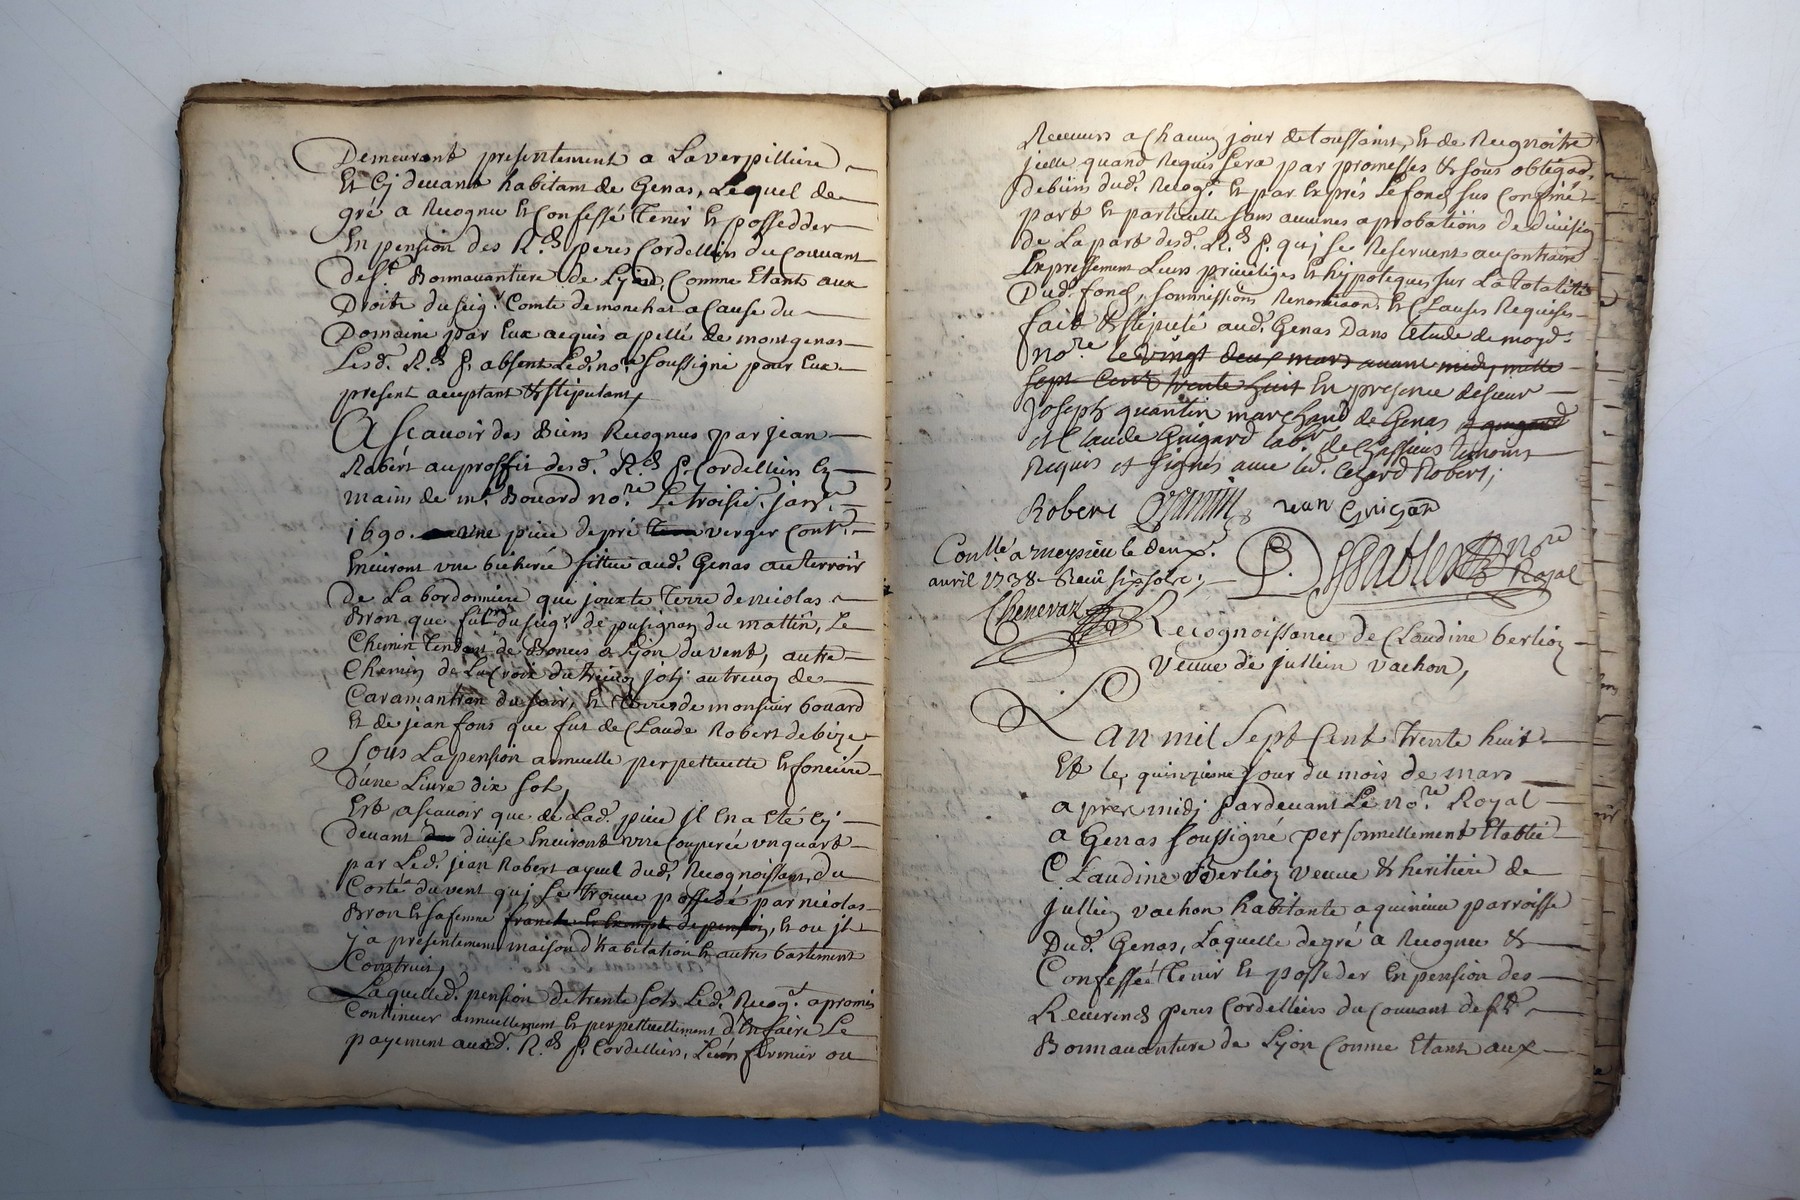 Demeurant presentement a Laverpilliere
Et Cj devant habitant de Genas, Lequel de
gré a Recognu Et Confessé Tenir Et possedder
En pension des R.ds peres Cordelliers du Couvant
de St. Bonnavanture de Lyon, Comme Etant aux
Droits du seig.r Comte de monchat a Cause du
Domaine par Eux acquis apellé de montgenas
Lesd. R.ds P. absent Led. no.re soussigné pour Eux
present aceptant & stipulant,
A Scavoir des Biens Recognus par jean
Robert au proffit desd. R.ds P. Cordelliers Ez
mains de m.e Bouard no.re Le troisie. janv.r
1690. une piece de pré verger Cont.
Environt une bicherée sittuée aud. Genas au terroir
de La bordonniere que jouxte terre de nicolas
Bron que fut du seig.r de pusignan du mattin, Le
Chemin Tendant de Bonces a Lyon du vent, autre
Chemin de La Croix du trievoz jolj au trievoz de
Caramantran du soir, Et terres de monsieur bouard
Et de jean fons que fut de Claude Robert de bize,
Sous La pension annuelle perpettuelle Et fonciere
Dune Livre dix sol,
Et a scavoir que de Lad. piece jl En a Eté Cj
devant divise Environt une Couperée un quart
par Led. jean Robert ayeul dud. Recognoissant, du
Costé du vent quj Se trouve possedé par nicolas
Bron Et sa femme franche Et Exempte de pension, Et ou jl
y a presentement maison d'habitation Et autres bastiment
Construit,
Laquelle d. pension de trente sols Led. Recog.t a promis
Continuer annuellement Et perpettuellement d'En faire Le
payement auxd. R.ds P. Cordelliers, Leur fermier ou
Receveurs a Chacun jour de toussaint, Et de Recgnoitre
jcelle quand Requis Sera par promesses & sous obligaon.
de biens dud. Recog.t Et par Exprés Le fond sus Confiné
part Et particelle sans aucunes aprobations de division
de La part desd. R.ds P. quj se Reservent au Contraire
Expressement Leurs privileges Et hypoteques sur La totalité
Dud. fond, soumissions Renonciaon. Et Clauses Requises
fait & stipulé aud. Genas Dans létude de moyd.
no.re le vingt deux mars avant midy mille
sept Cent trente huit En presence de sieur
Joseph quantin marchand de Genas
et Claude Guigard lab.r de Chassieu temoins
Requis et signés avec led. Cezard Robert,
Robert Quantin Guigard
Conllé a meyzieu le deux.e
avril 1738. Receu six sols;
P. Dessables no.re
Royal
Chenevaz
Recognoissance de Claudine berlioz
veuve de jullien vachon,
L'an mil Sept Cent Trente huit
Et le quinzieme jour du mois de mars
apres midj pardevant Le no.re Royal
a Genas soussigné personnellement Etablie
Claudine Berlioz veuve & heritiere de
jullien vachon habitante a quincieu parroisse
Dud. Genas, Laquelle de gré a Recognu &
Confessé Tenir Et posseder En pension des
Reverends peres Cordelliers du Couvant de St.
Bonnavanture de Lyon Comme Etant aux